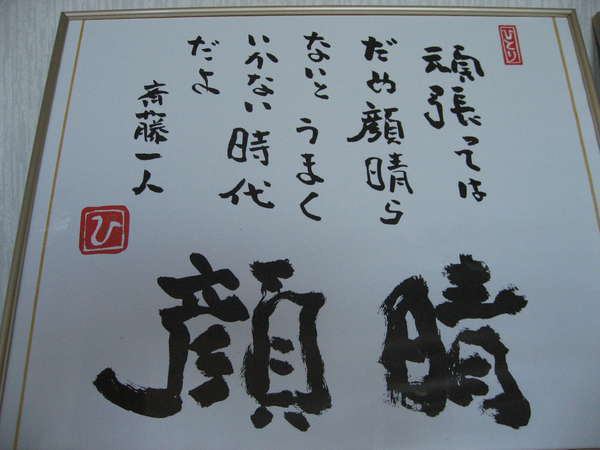 ひとり
頑張っては
だめ顔晴ら
ないとうまく
いかない時代
だよ
斎藤一人
ひ
顔晴